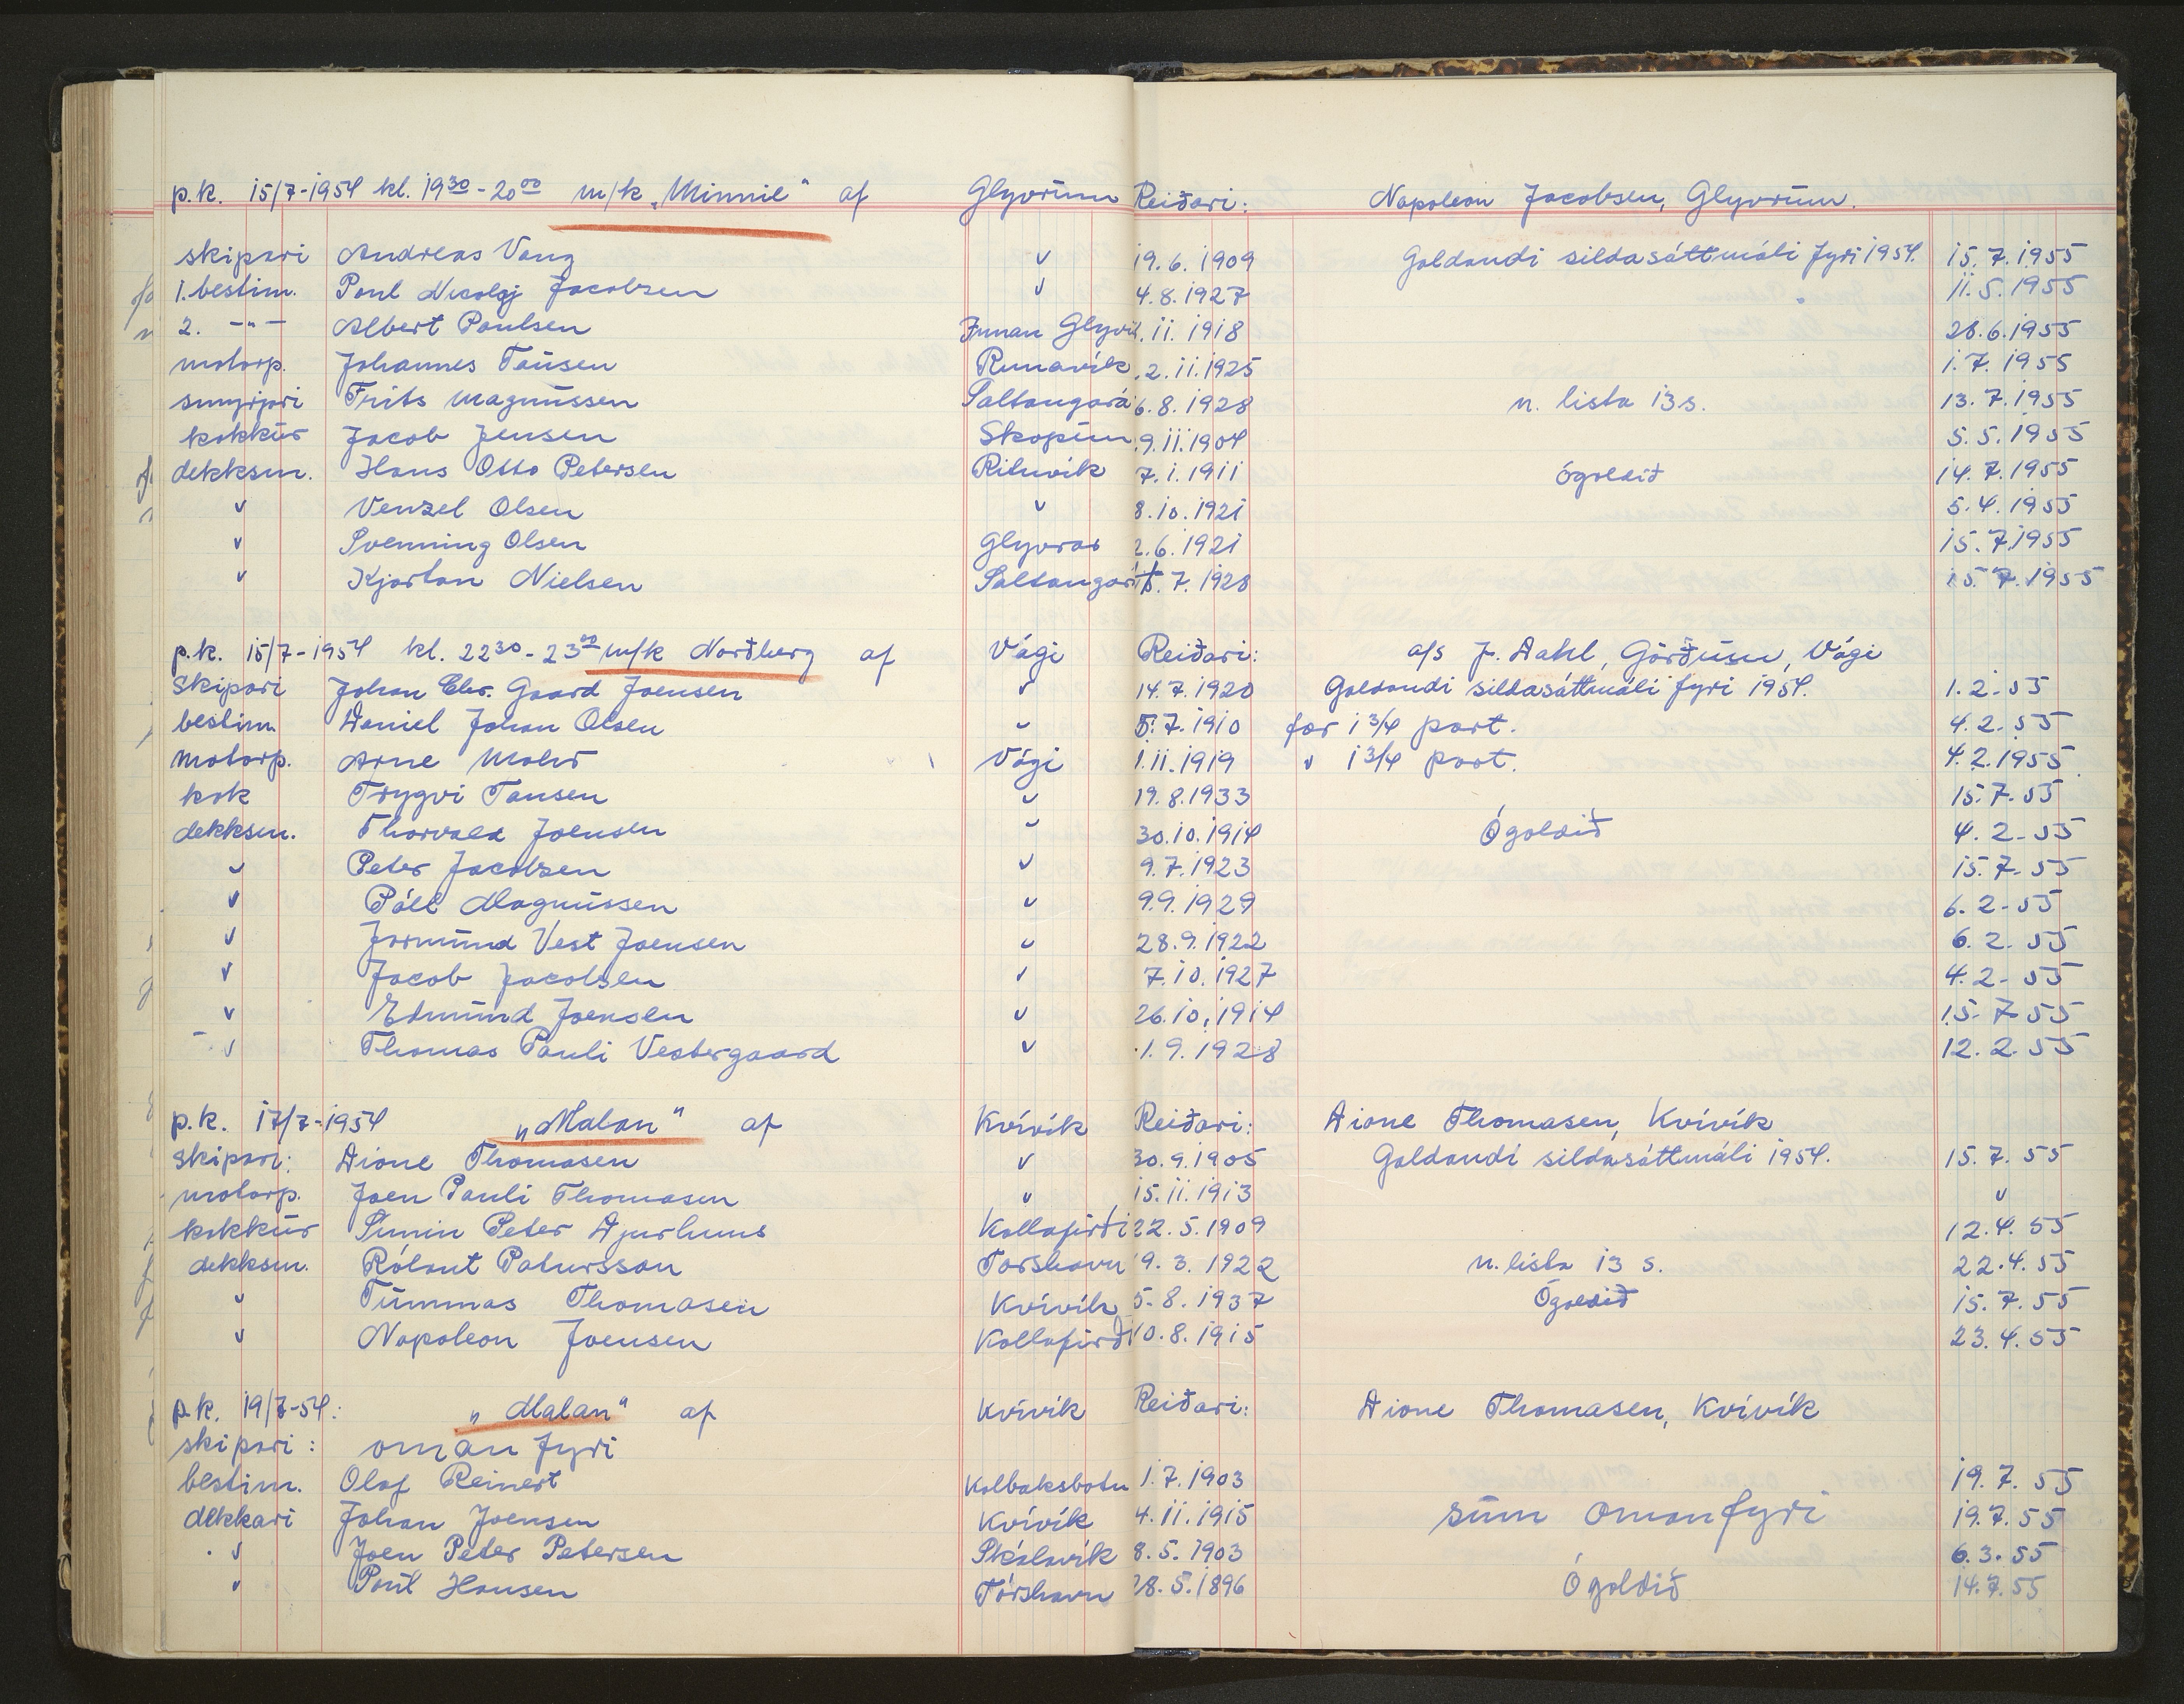 p.k. 15/7-1954 kl. 19³⁰-20⁰⁰ m/k „Minnie“ af Glyvrum Reiðari: Napoleon Jacobsen, Glyvrum.
skipari Andreas Vang " 19.6.1909 Galdandi sildasáttmáli fyri 1954. 15.7.1955
1. bestim. Poul Nicolaj Jacobsen " 4.8.1927 " 11.5.1955
2. -"- Albert Poulsen Innan Glyvur .11.1918 28.6.1955
motorp. Johannes Tausen Runavík 2.11.1925 1.7.1955
smyrjari Frits Magnussen Saltangará 6.8.1928 n. lista 13 s. 13.7.1955
kokkur Jacob Jensen Skopun 9.11.1904 5.5.1955
dekksm. Hans Otto Petersen Rituvík 7.1.1911 ógoldið 14.7.1955
" Venzel Olsen " 8.10.1921 5.4.1955
" Svenning Olsen Glyvrar 2.6.1921 15.7.1955
" Kjartan Nielsen Saltangará 5.7.1928 15.7.1955
p.k. 15/7-1954 kl. 22³⁰-23⁰⁰ m/k Norðberg af Vági Reiðari: a/s J. Dahl, Görðusu, Vági
Skipari Johan Chr. Gaard Joensen " 14.7.1920 Galdandi sildasáttmáli fyri 1954. 1.2-55
bestim. Daniel Johan Olsen " 5.7.1910 for 1 3/4 part. 4.2.55
motorp. Arne Mohr Vági 1.11.1919 " 1 3/4 part. 4.2.1955
kok Trygvi Tausen " 19.8.1933 15.7.55
dekksm. Thorvald Joensen " 30.10.1914 Ógoldið 4.2-55
" Peter Jacobsen " 9.7.1923 15.7-55
" Páll Magnussen " 9.9.1929 6.2-55
" Jormund Vest Joensen " 28.9.1922 6.2.55
" Jacob Jacobsen " 7.10.1927 4.2-55
" Edmund Joensen " 26.10.1914 15-7-55
" Thomas Pauli Vestergaard " 1.9.1928 12.2.55
p.k. 17/7-1954 „Malan“ af Kvívík Reiðari: Dione Thomasen, Kvívík
Skipari: Dione Thomasen " 30.9.1905 Galdandi sildasáttmáli 1954. 15.7.55
motorp. Joen Pauli Thomasen " 15.11.1913 "
kokkur Simin Peter Djurhuus Kollafirði 22.5.1909 12.4.55
dekksm. Rólant Patursson Torshavn 9.3.1922 n. lista 13 s. 22.4.55
" Tummas Thomasen Kvívík 5.8.1937 Ógoldið 15.7.55
" Napoleon Joensen Kollafirði 10.8.1915 23.4.55
p.k. 19/7-54: „Malan“ af Kvívík Reiðari: Dione Thomasen, Kvívík
skipari: oman fyri
bestim. Olaf Reinert Kolbaksbotn 1.7.1903 19.7.55
dekkari Johan Joensen Kvívík 4.11.1915 sum omanfyri 19.7.55
" Joen Peter Petersen Skálavík 8.5.1903 6.3.55
" Poul Hansen Tórshavn 28.5.1896 Ógoldið 14.7.55